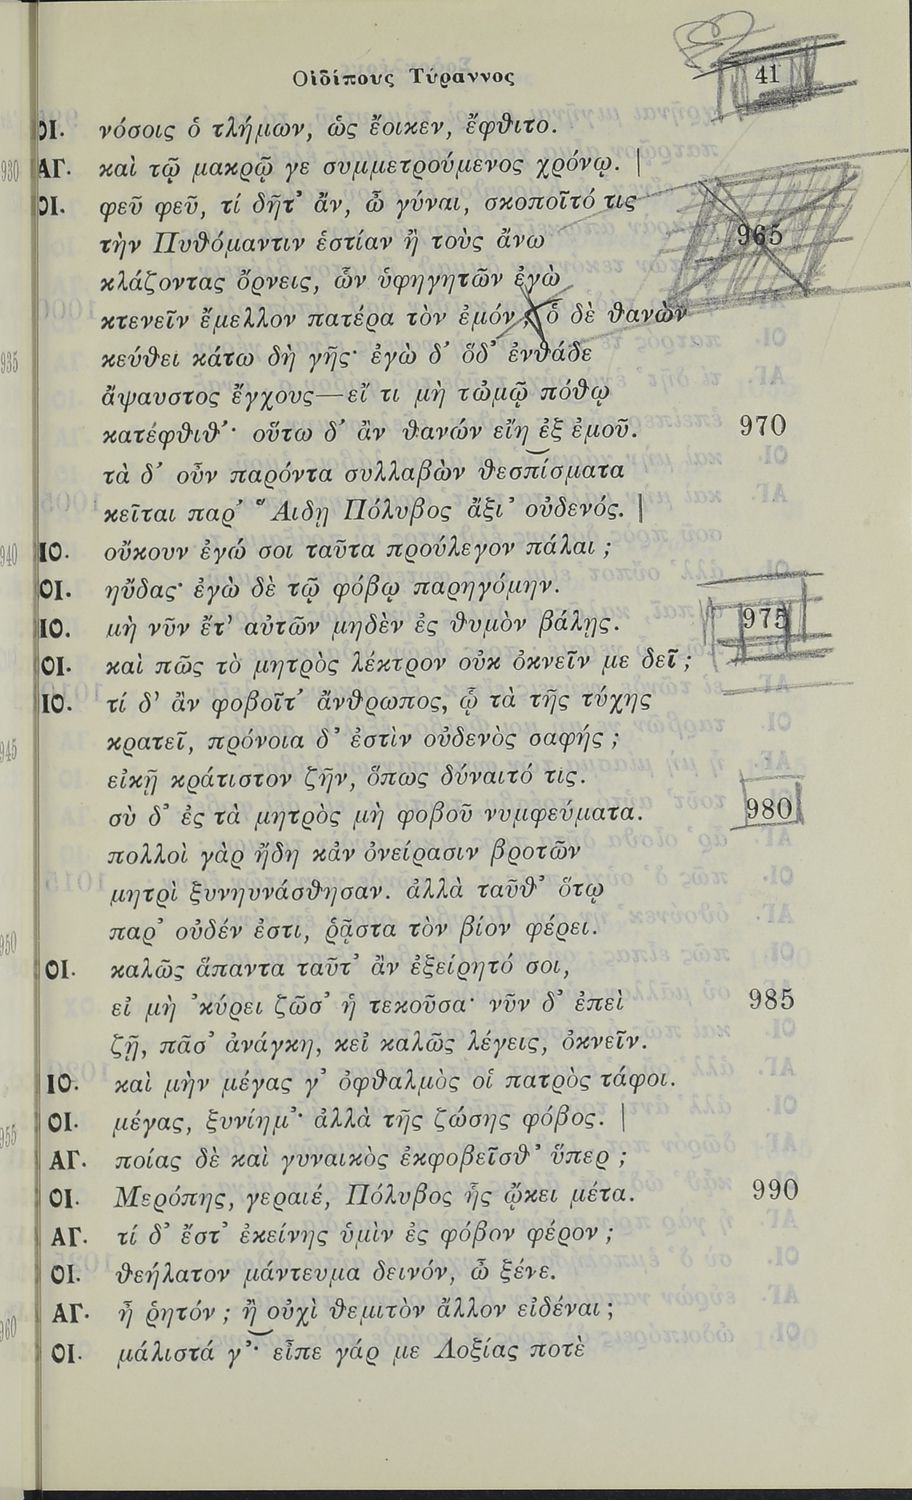 Οἰδίπους Τύραννος 41
ΟΙ. νόσοις ὁ τλήμων, ὡς ἔοικεν, ἔφθιτο.
930 ΑΓ. καὶ τῷ μακρῷ γε συμμετρούμενος χρόνῳ.
ΟΙ. φεῦ φεῦ, τί δῆτ’ ἄν, ὦ γύναι, σκοποῖτό τις
τὴν Πυθόμαντιν ἑστίαν ἢ τοὺς ἄνω 965
κλάζοντας ὄρνεις, ὧν ὑφηγητῶν ἐγὼ
κτενεῖν ἔμελλον πατέρα τὸν ἐμόν; ὁ δὲ θανὼν
935 κεύθει κάτω δὴ γῆς· ἐγὼ δ’ ὅδ’ ἐνθάδε
ἄψαυστος ἔγχους—εἴ τι μὴ τὠμῷ πόθῳ
κατέφθιθ’· οὕτω δ’ ἂν θανών εἴη ἐξ ἐμοῦ. 970
τὰ δ’ οὖν παρόντα συλλαβὼν θεσπίσματα
κεῖται παρ’ Ἅιδῃ Πόλυβος ἄξι’ οὐδενός.
940 ΙΟ. οὔκουν ἐγώ σοι ταῦτα προύλεγον πάλαι;
ΟΙ. ηὔδας· ἐγὼ δὲ τῷ φόβῳ παρηγόμην.
ΙΟ. μὴ νῦν ἔτ’ αὐτῶν μηδὲν ἐς θυμὸν βάλῃς. 975
ΟΙ. καὶ πῶς τὸ μητρὸς λέκτρον οὐκ ὀκνεῖν με δεῖ;
ΙΟ. τί δ’ ἂν φοβοῖτ’ ἄνθρωπος, ᾧ τὰ τῆς τύχης
945 κρατεῖ, πρόνοια δ’ ἐστὶν οὐδενὸς σαφής;
εἰκῇ κράτιστον ζῆν, ὅπως δύναιτό τις.
σὺ δ’ ἐς τὰ μητρὸς μὴ φοβοῦ νυμφεύματα. 980
πολλοὶ γὰρ ἤδη κἀν ὀνείρασιν βροτῶν
μητρὶ ξυνηυνάσθησαν. ἀλλὰ ταῦθ’ ὅτῳ
950 παρ’ οὐδέν ἐστι, ῥᾷστα τὸν βίον φέρει.
ΟΙ. καλῶς ἅπαντα ταῦτ’ ἂν ἐξείρητό σοι,
εἰ μὴ ’κύρει ζῶσ’ ἡ τεκοῦσα· νῦν δ’ ἐπεὶ 985
ζῇ, πᾶσ’ ἀνάγκη, κεἰ καλῶς λέγεις, ὀκνεῖν.
ΙΟ. καὶ μὴν μέγας γ’ ὀφθαλμὸς οἱ πατρὸς τάφοι.
955 ΟΙ. μέγας, ξυνίημ’· ἀλλὰ τῆς ζώσης φόβος.
ΑΓ. ποίας δὲ καὶ γυναικὸς ἐκφοβεῖσθ’ ὕπερ;
ΟΙ. Μερόπης, γεραιέ, Πόλυβος ἧς ᾤκει μέτα. 990
ΑΓ. τί δ’ ἔστ’ ἐκείνης ὑμὶν ἐς φόβον φέρον;
ΟΙ. θεήλατον μάντευμα δεινόν, ὦ ξένε.
960 ΑΓ. ἦ ῥητόν; ἢ οὐχὶ θεμιτὸν ἄλλον εἰδέναι;
ΟΙ. μάλιστά γ’· εἶπε γάρ με Λοξίας ποτὲ